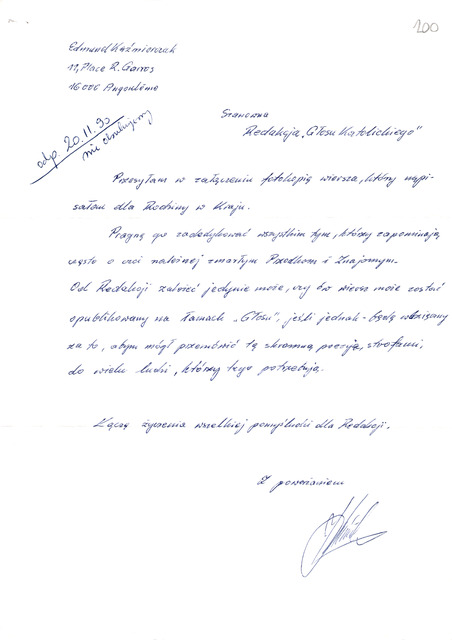 200
Edmund Kaźmierczak
11, Place R. Garros
16000 Angoulême
odp. 20.11.90
nie drukujemy
Szanowna
Redakcja „Głosu Katolickiego"
Przesyłam w załączeniu fotokopię wiersza, który napi-
sałem dla Rodziny w Kraju.
Pragnę go zadedykować wszystkim tym, którzy zapominają
często o czci należnej zmarłym Przodkom i Znajomym.
Od Redakcji zależeć jedynie może, czy ów wiersz może zostać
opublikowany na łamach „Głosu", jeśli jednak - będę wdzięczny
za to, abym mógł przemówić tą skromną poezją, strofami,
do wielu ludzi, którzy tego potrzebują.
Łączę życzenia wszelkiej pomyślności dla Redakcji.
Z poważaniem